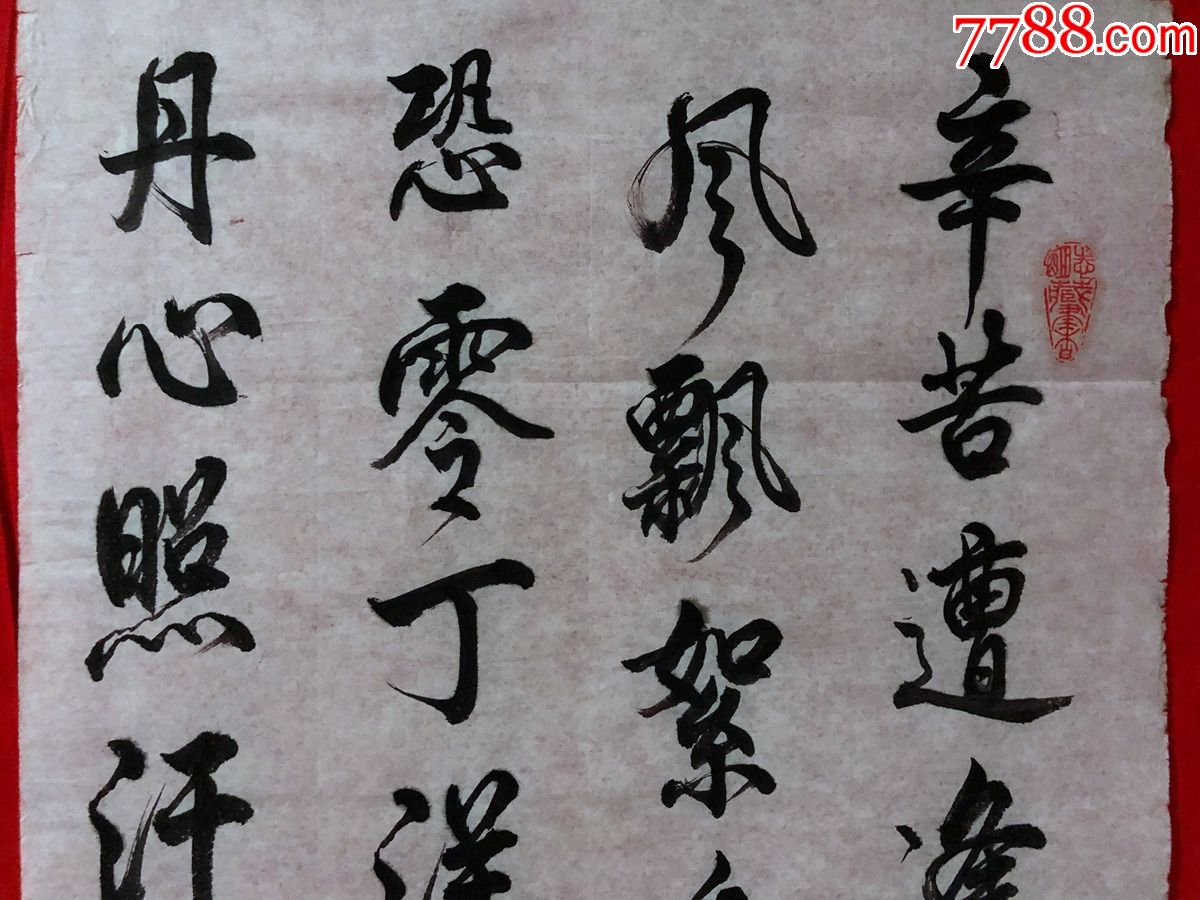 7788.com
辛苦遭逢
风飘絮
恐零丁洋
丹心照汗